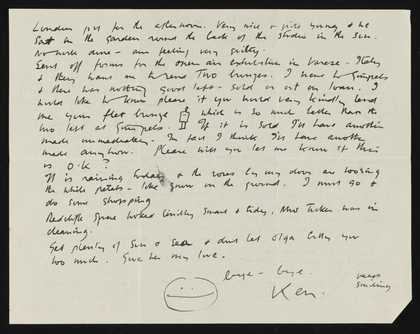 London just for the afternoon. Very nice & quite young & we
sat in the garden round the back of the studio in the sun.
No work done - am feeling very guilty.
Sent off forms for the open air exhibition in Varese - Italy
& they want me to send two bronzes. I went to Gimpels
& there was nothing good left - sold or out on loan. I
would like to know please if you would very kindly lend
me your flat bronze which is so much better than the
two left at Gimpels. If it is sold I'll have another
made immediately. In fact I think I'll have another
made anyhow. Please will you let me know if this
is O.K?
It is raining today & the roses by my door are loosing
the white petals - like snow on the ground. I must go &
do some shopping
Redcliffe Square looked terribly smart & tidy. Mrs Tucker was in
cleaning.
Get plenty of Sun & Sea & dont let Olga bully you
too much. Give her my love.
bye - bye.
Ken.
keep
smiling